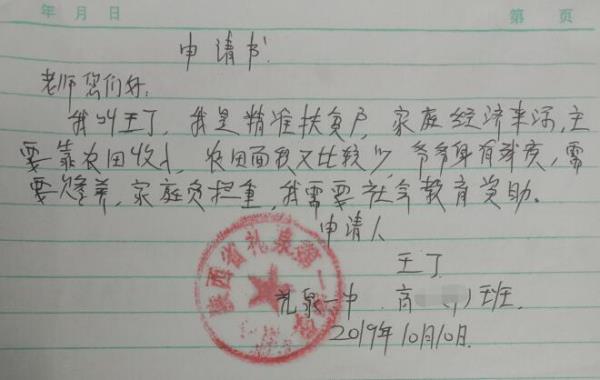 年 月 日 第 页
申请书
老师您们好:
我叫王丁，我是精准扶贫户，家庭经济来源，主
要靠农田收入，农田面积又比较少，爷爷身有残疾，需
要人养，家庭负担重，我需要社会教育资助。
申请人
王丁
礼泉一中 高 班
2019年10月10日
陕西省礼泉第一